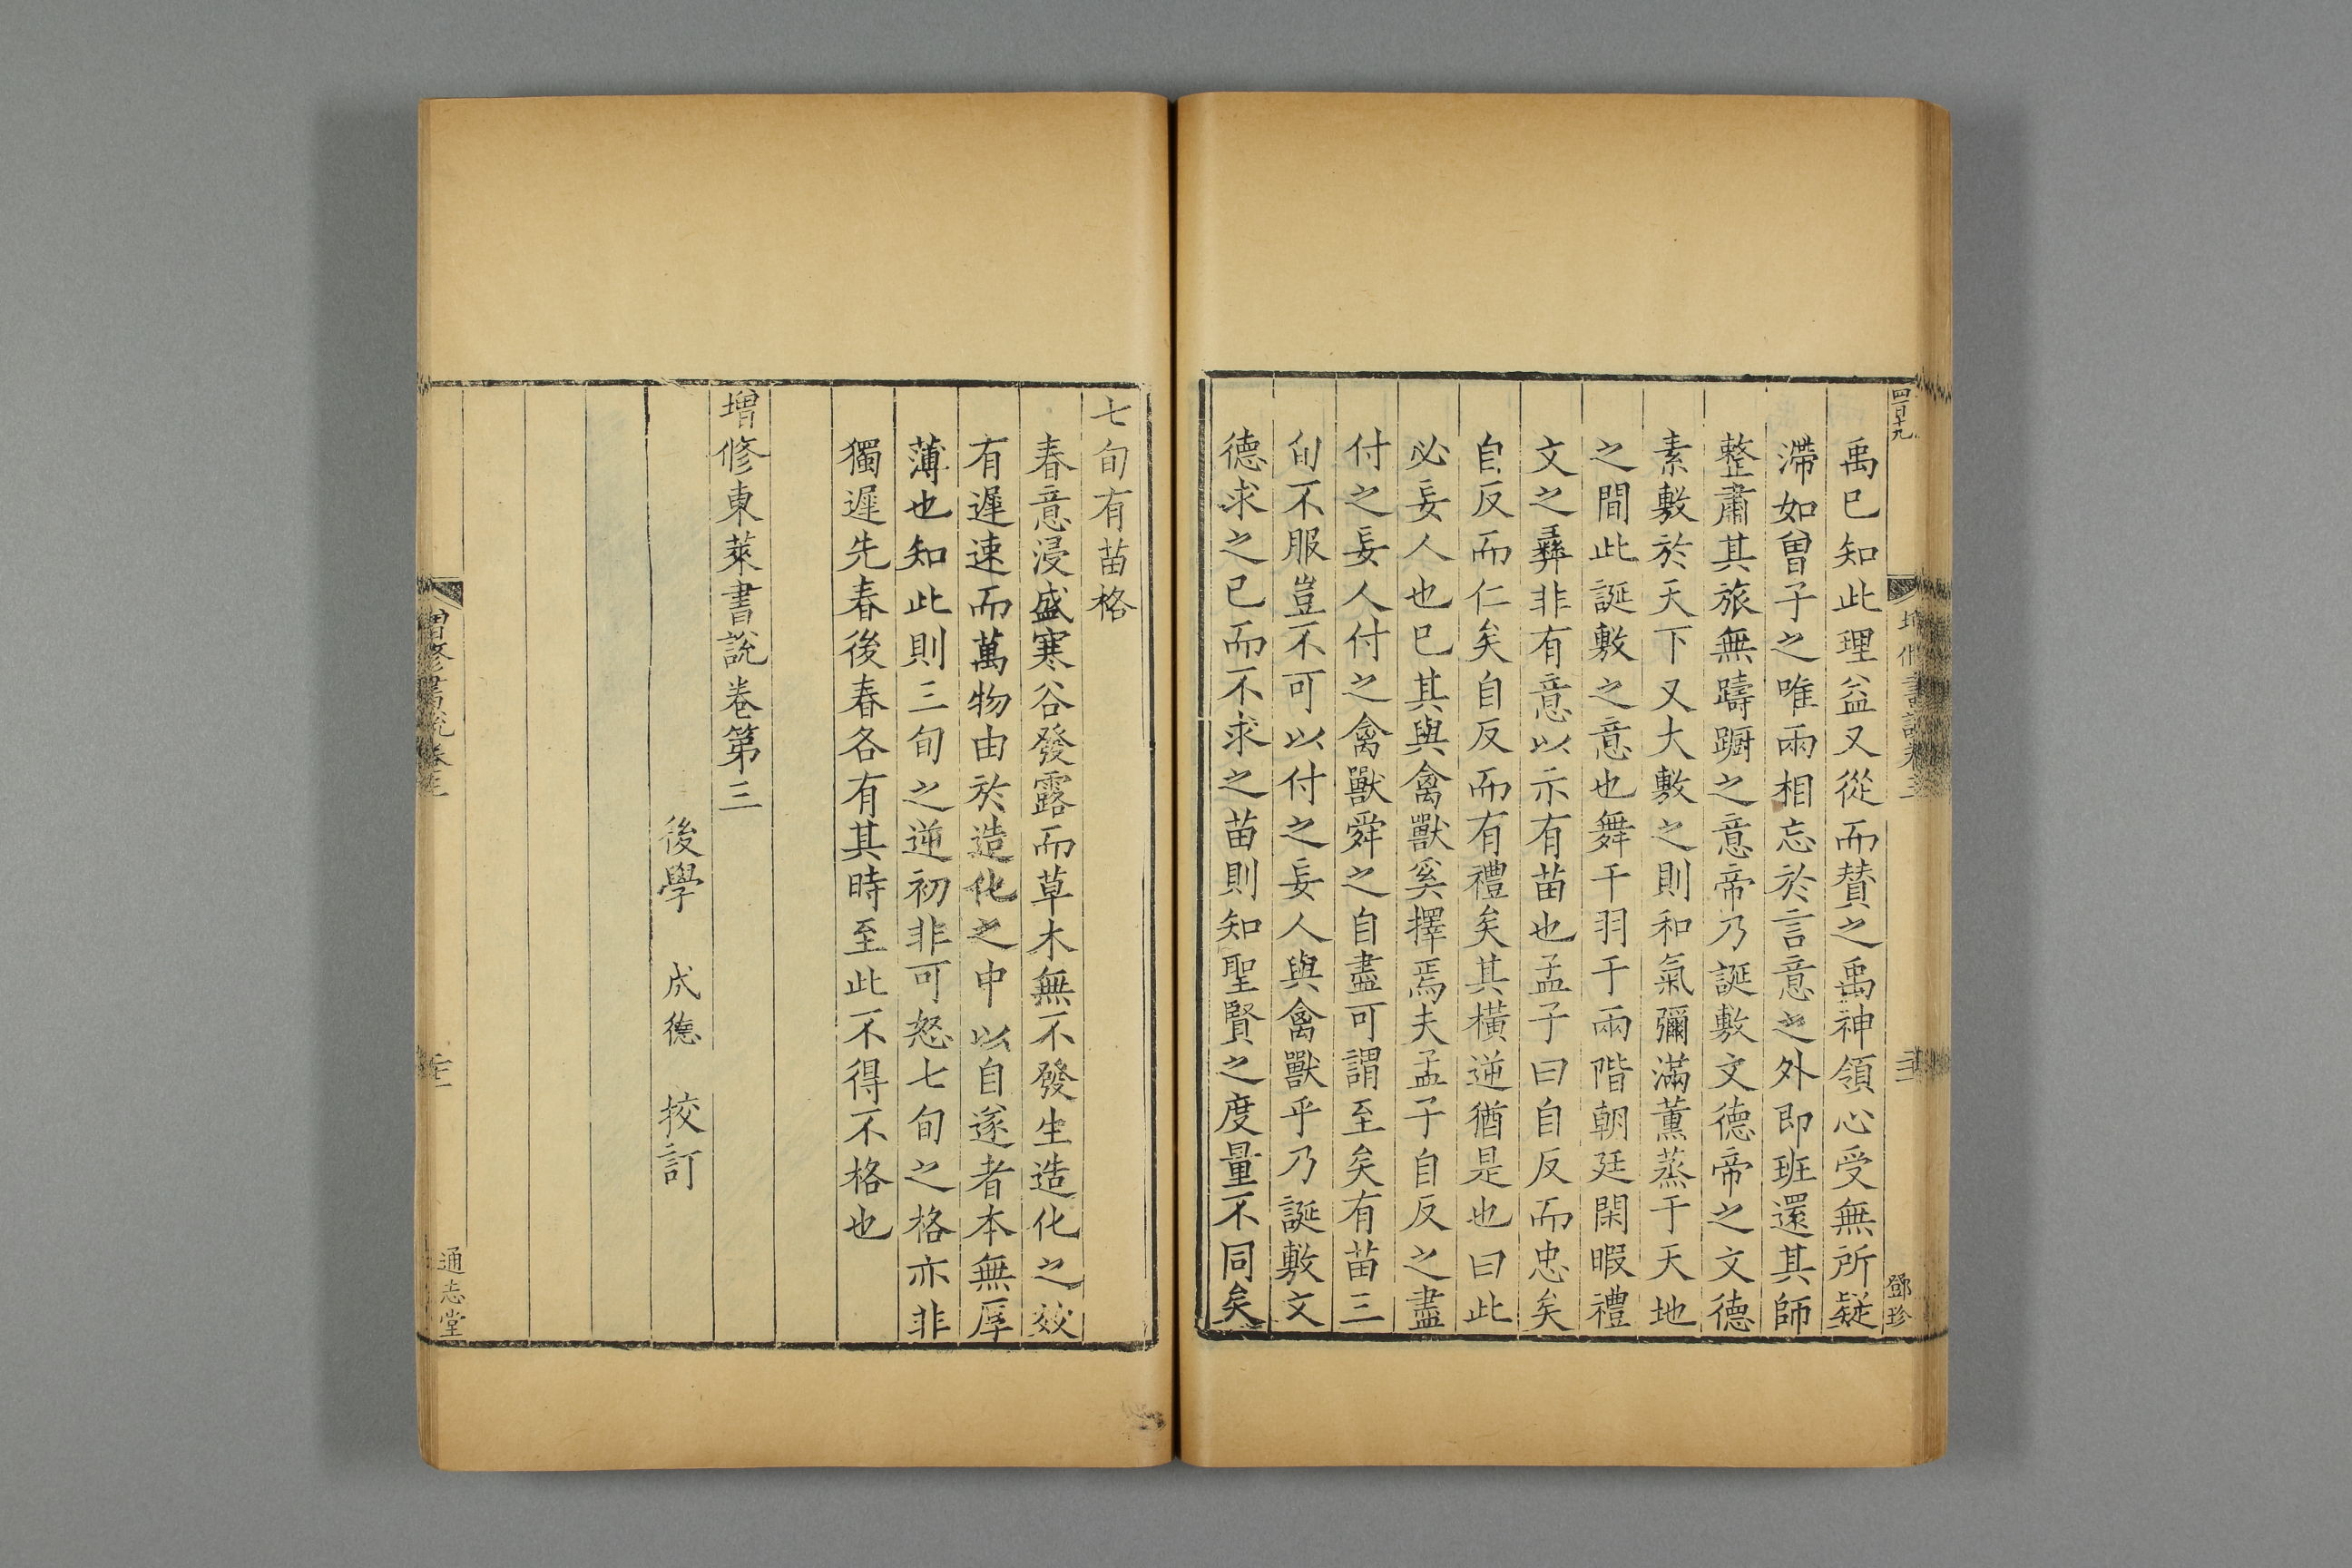 四百十九
鄧珍
禹已知此理益又從而賛之禹神領心受無所疑
滯如曽子之唯兩相忘於言意之外即班還其師
整肅其旅無躊躇之意帝乃誕敷文德帝之文德
素敷於天下又大敷之則和氣彌滿薫蒸于天地
之間此誕敷之意也舞干羽于兩階朝廷閑暇禮
文之彞非有意以示有苗也孟子曰自反而忠矣
自反而仁矣自反而有禮矣其橫逆猶是也曰此
必妄人也已其與禽獸奚擇焉夫孟子自反之盡
付之妄人付之禽獸舜之自盡可謂至矣有苗三
旬不服豈不可以付之妄人與禽獸乎乃誕敷文
德求之已而不求之苗則知聖賢之度量不同矣
七旬有苗格
春意浸盛寒谷發露而草木無不發生造化之效
有遲速而萬物由於造化之中以自遂者本無厚
薄也知此則三旬之逆初非可怒七旬之格亦非
獨遲先春後春各有其時至此不得不格也
增修東萊書說卷第三
後學 成德 挍訂
增修書說卷三
通志堂